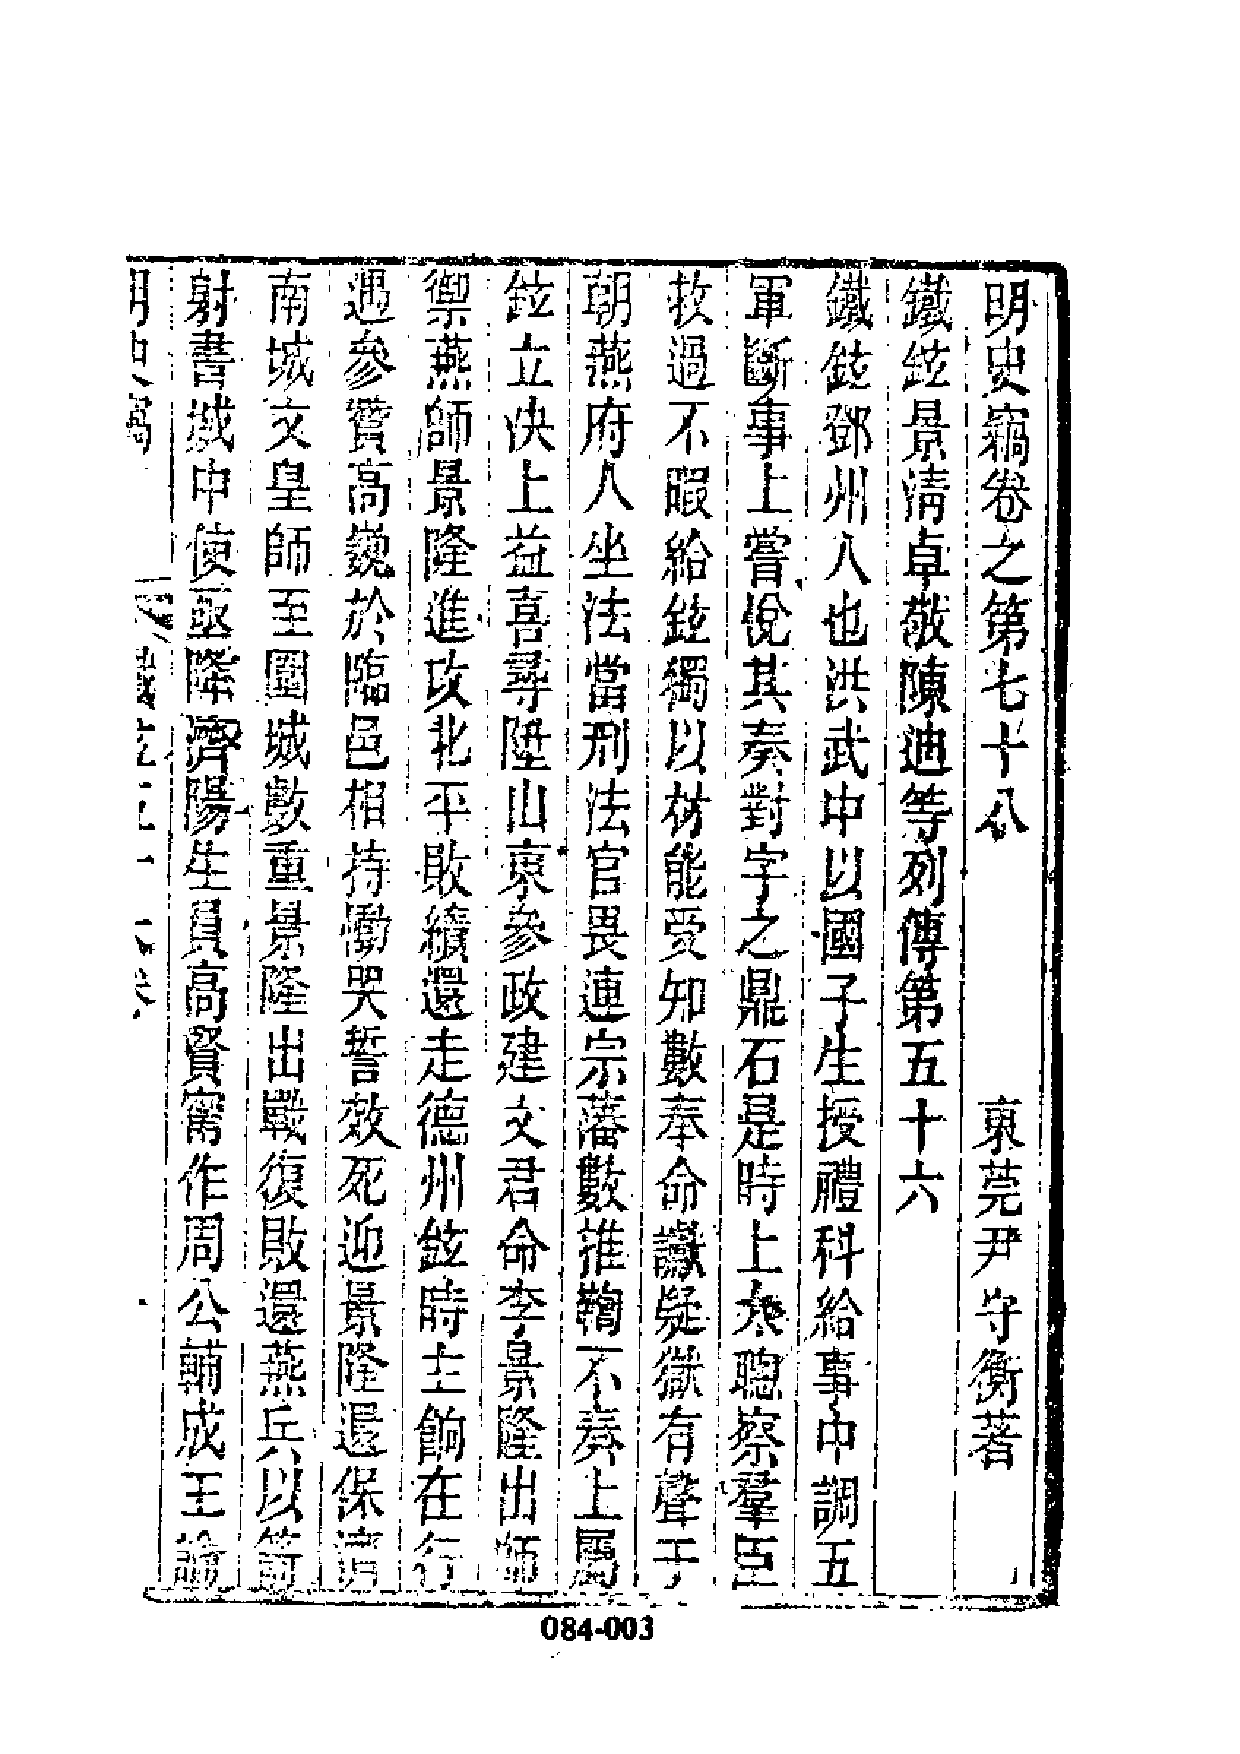 明史竊卷之第七十八 東莞尹守衡著
鐵鉉景清卓敬陳迪等列傳第五十六
鐵鉉鄧州人也洪武中以國子生授禮科給事中調五
軍斷事上嘗悅其奏對字之鼎石是時上太聰察羣臣
救過不暇給鉉獨以材能受知數奉命讞疑獄有聲于
朝燕府人坐法當刑法官畏連宗藩數推鞫不奏上屬
鉉立決上益喜尋陞山東參政建文君命李景隆出師
禦燕師景隆進攻北平敗績還走德州鉉時主餉在行
遇參贊高巍於臨邑相持慟哭誓效死迎景隆還保濟
南城文皇師至圍城數重景隆出戰復敗還燕兵以箭
射書城中使亟降濟陽生員高賢甯作周公輔成王論
明史竊 鐵鉉 卷
084-003